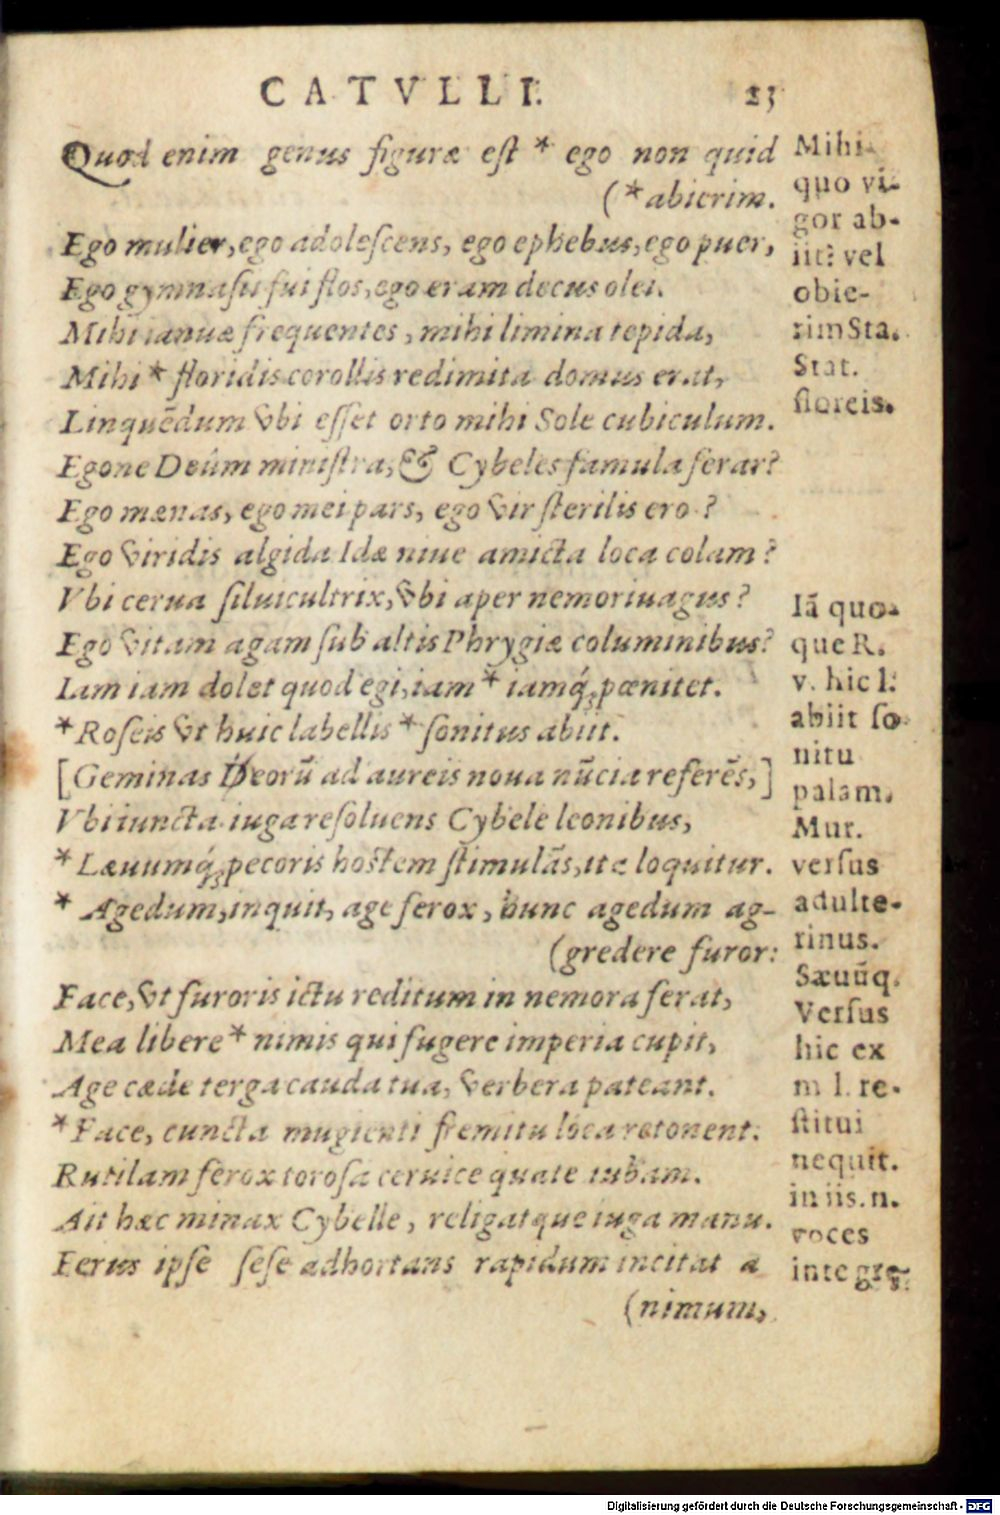 CATVLLI. 23
Quod enim genus figuræ est * ego non quid
(* abierim.
Ego mulier, ego adolescens, ego ephebus, ego puer,
Ego gymnasij fui flos, ego eram decus olei.
Mihi ianuæ frequentes, mihi limina tepida,
Mihi * floridis corollis redimita domus erat,
Linquēdum vbi esset orto mihi Sole cubiculum.
Egone Deûm ministra, & Cybeles famula ferar?
Ego mænas, ego mei pars, ego vir sterilis ero?
Ego viridis algida Idæ niue amicta loca colam?
Vbi cerua siluicultrix, vbi aper nemoriuagus?
Ego vitam agam sub altis Phrygiæ columinibus?
Iam iam dolet quod egi, iam * iamq́; pœnitet.
* Roseis vt huic labellis * sonitus abiit.
[Geminas Deorū ad aureis noua nūcia referēs,]
Vbi iuncta iuga resoluens Cybele leonibus,
* Læuumq́; pecoris hostem stimulās, ita loquitur.
* Agedum, inquit, age ferox, hunc agedum ag-
(gredere furor:
Face, vt furoris ictu reditum in nemora ferat,
Mea libere * nimis qui fugere imperia cupit,
Age cæde terga cauda tua, verbera pateant.
* Face, cuncta mugienti fremitu loca retonent.
Rutilam ferox torosa ceruice quate iubam.
Ait hæc minax Cybelle, religatque iuga manu.
Ferus ipse sese adhortans rapidum incitat a
(nimum,
Mihi
quo vi-
gor ab-
iit: vel
obie-
rim Sta.
Stat.
floreis.
Iā quo-
que R.
v. hic l.
abiit so
nitu
palam.
Mur.
versus
adulte-
rinus.
Sæuūq.
Versus
hic ex
m. l. re-
stitui
nequit.
in iis. n.
voces
integrę
Digitalisierung gefördert durch die Deutsche Forschungsgemeinschaft - DFG